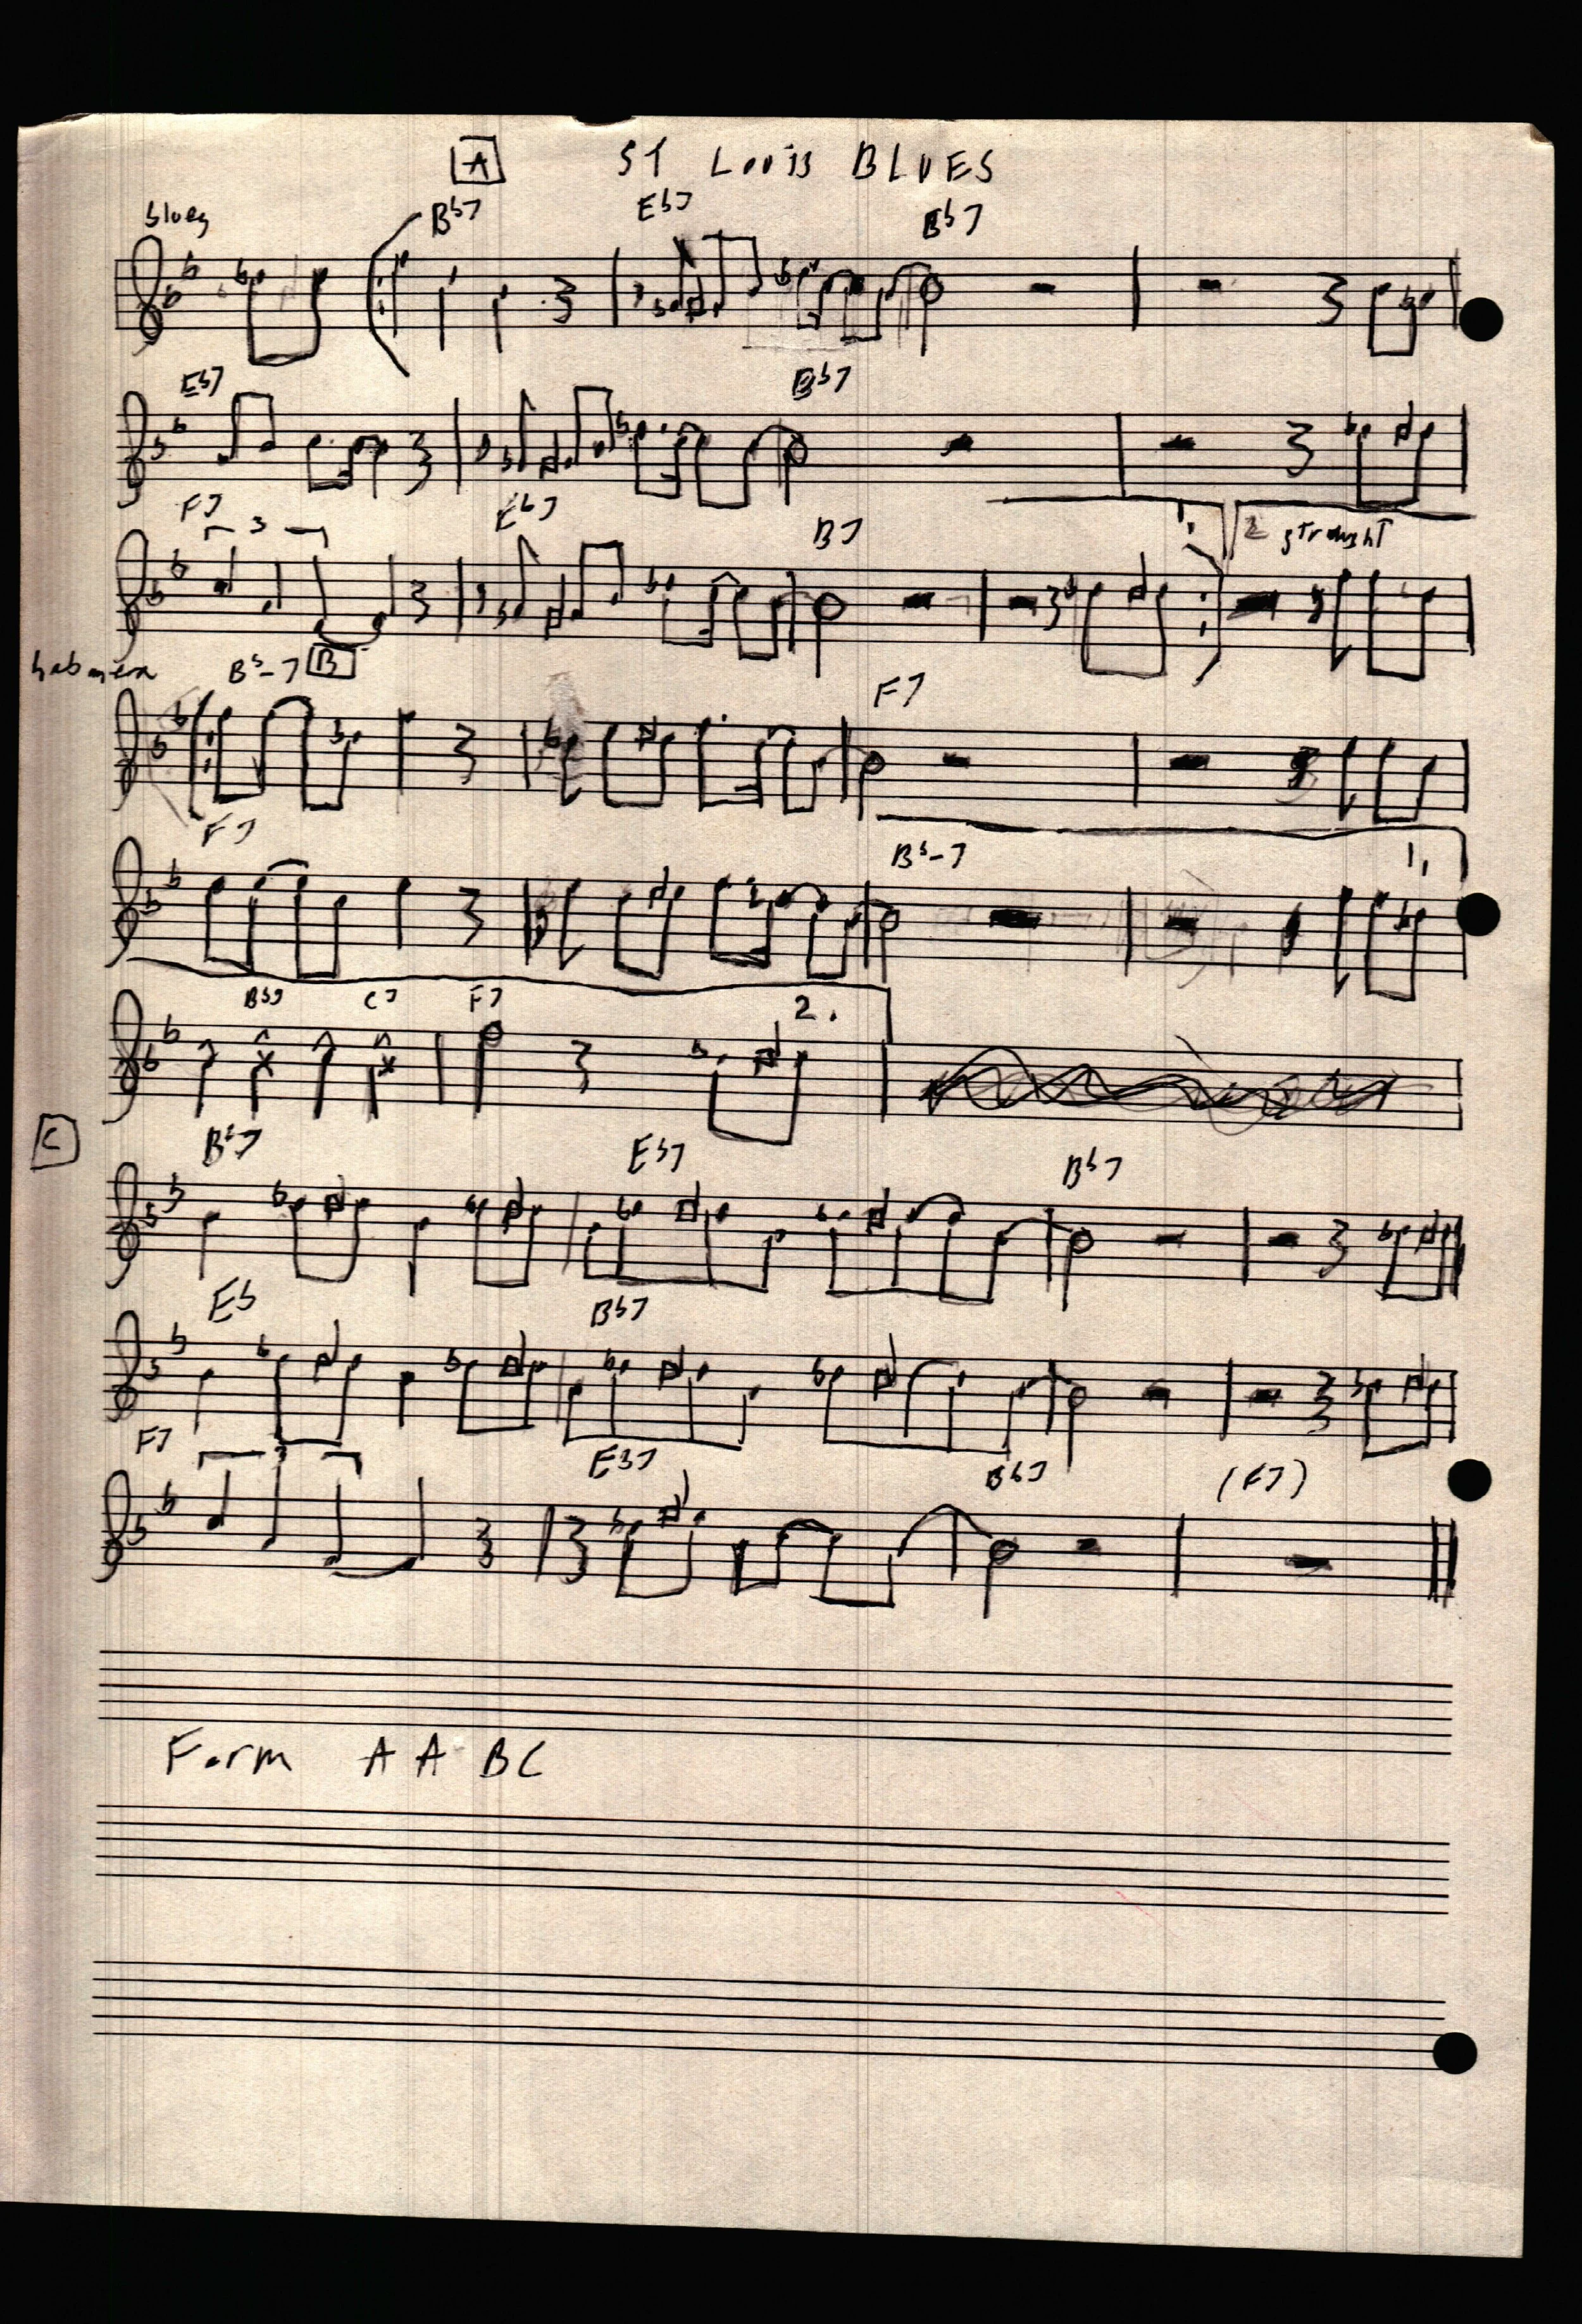 A ST Louis BLUES
blues Bb7 Eb7 Bb7
Eb7 Bb7
F7 Eb7 B7 1. 2 straight
3
habanera Bb-7 B F7
F7 Bb-7 1.
Bb7 C7 F7 2.
C Bb7 Eb7 Bb7
Eb Bb7
F7 3 Eb7 Bb7 (F7)
Form A A BC